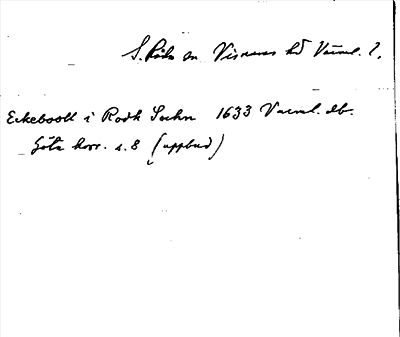 S. Råda sn Visnums hd Värml. l.
Ekebooll i Rodh Sochn 1633 Värml. db.
Göta hovr. s. 8 (uppbud)